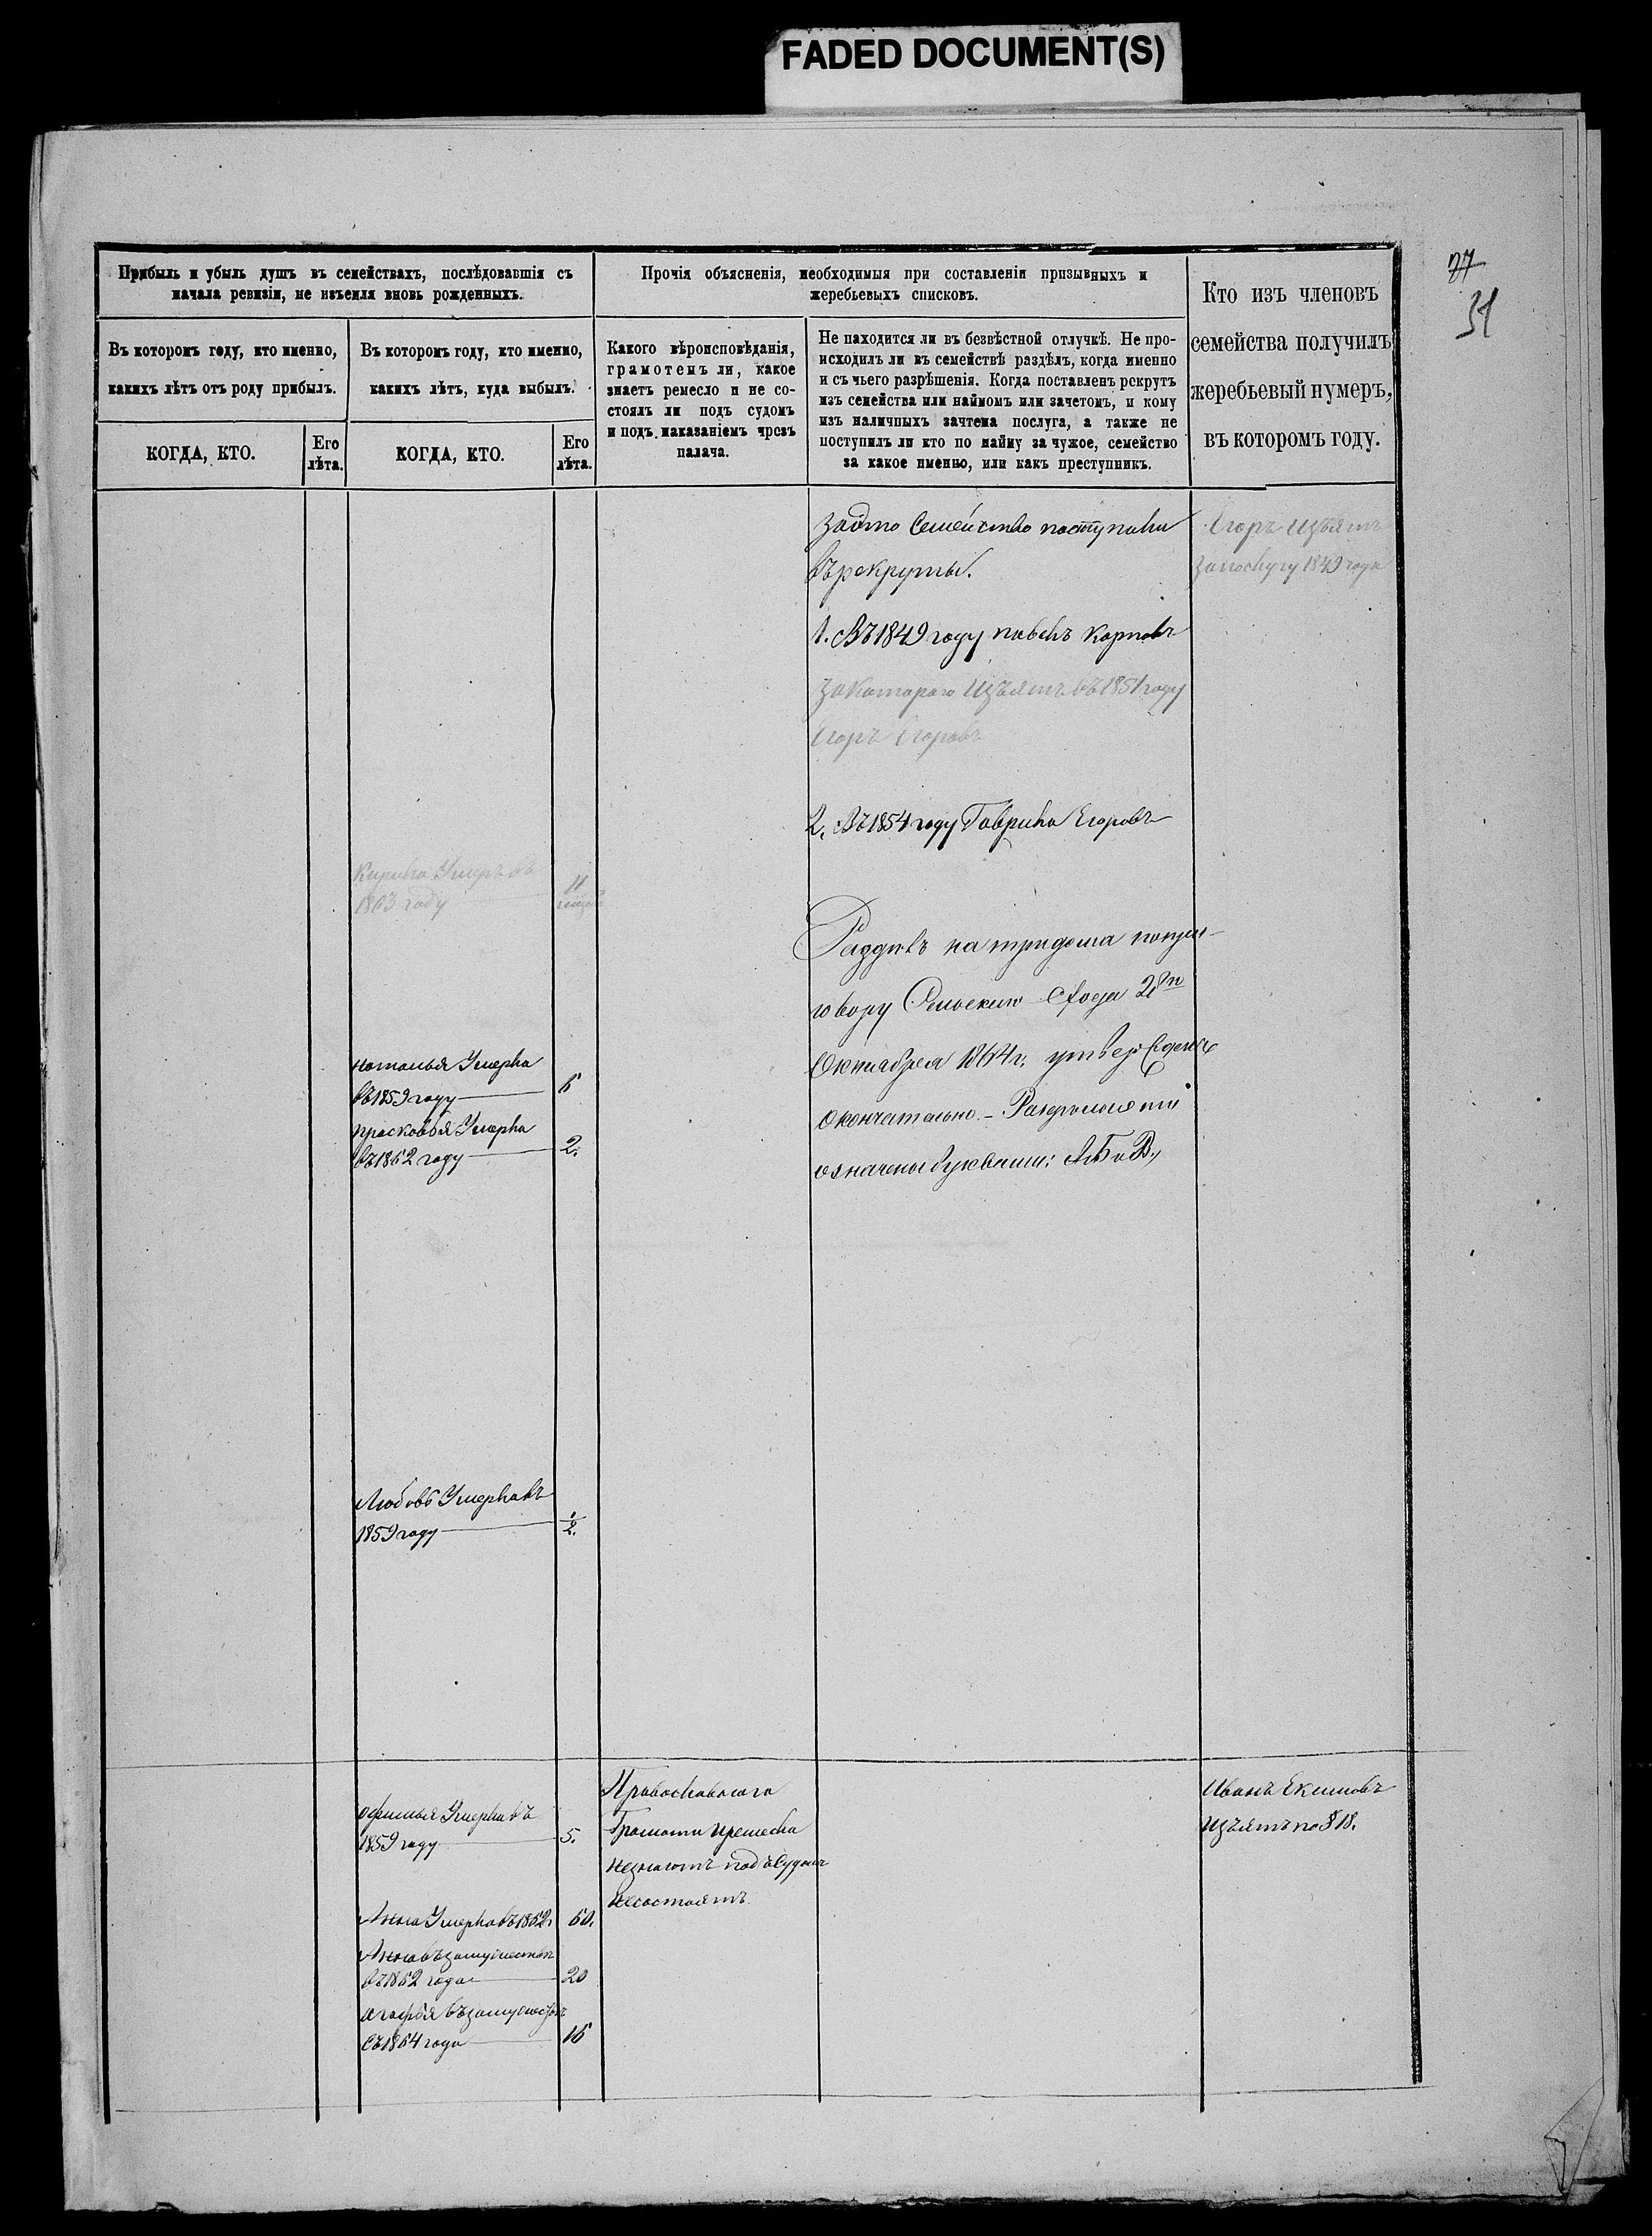 FADED DOCUMENT(S)
77
31
Прибыль и убыль душъ въ семействахъ, послѣдовавшія съ
начала ревизіи, не изъемля вновь рожденныхъ.
Въ которомъ году, кто именно,
какихъ лѣтъ отъ роду прибылъ.
КОГДА, КТО.
Его
лѣта.
Въ которомъ году, кто именно,
какихъ лѣтъ, куда выбылъ.
КОГДА, КТО.
Его
лѣта.
Прочія объясненія, необходимыя при составленіи призывныхъ и
жеребьевыхъ списковъ.
Какого вѣроисповѣданія,
грамотемъ ли, какое
знаетъ ремесло и не со-
стоялъ ли подъ судомъ
и подъ наказаніемъ чрезъ
палача.
Не находится ли въ безвѣстной отлучкѣ. Не про-
исходилъ ли въ семействѣ раздѣлъ, когда именно
и съ чьего разрѣшенія. Когда поставленъ рекрутъ
изъ семейства или наймомъ или зачетомъ, и кому
изъ наличныхъ зачтена послуга, а также не
поступилъ ли кто по найму за чужое, семейство
за какое именно, или какъ преступникъ.
Кто изъ членовъ
семейства получилъ
жеребьевый нумеръ,
въ которомъ году.
За это Семейство поступили
въ рекруты.
1. Въ 1849 году павелъ Карповъ
за Котораго Изъятъ въ 1851 году
Егоръ Егоровъ
2. Въ 1854 году Гаврила Егоровъ
Раздѣлъ на три дома по при-
говору Сельскаго Схода 28го
Октября 1864 г. утвержденъ
окончательно. – Раздѣлы эти
означены буквами: А, Б и В.,
Егоръ Изъятъ
за послугу 1849 года
Кирила Умеръ въ
1863 году
11
наталья Умерла
въ 1859 году
6
прасковья Умерла
въ 1862 году
2.
Любовь Умерла въ
1859 году
1/2.
офимья Умерла въ
1859 году
5.
Анна Умерла въ 1862 г
60.
Анна въ замужествѣ
въ 1862 года
20
агафья въ замужествѣ
съ 1864 года
16
Православнаго
Грамоты иремесла
незнаютъ подъ Судомъ
несостоятъ
Иванъ Екимовъ
Изъятъ по § 18.